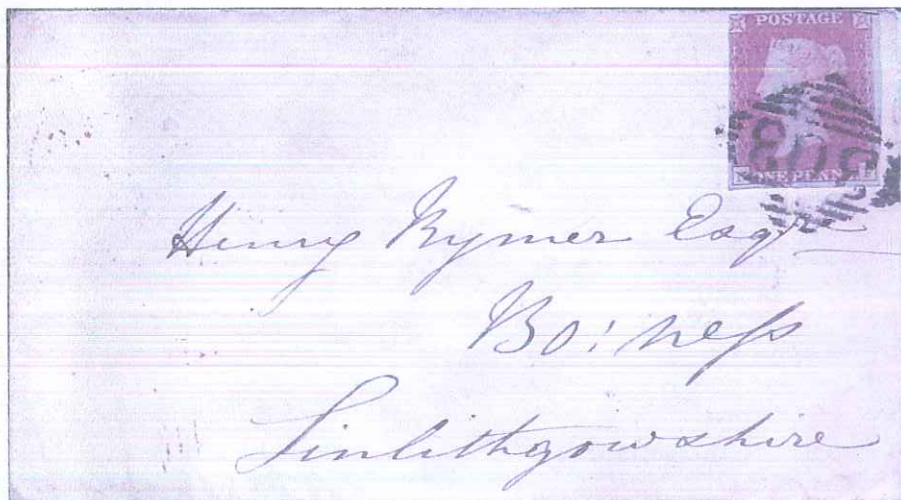 POSTAGE
ONE PENNY
Henry Rymer Esqre
Bo: ness
Linlithgowshire